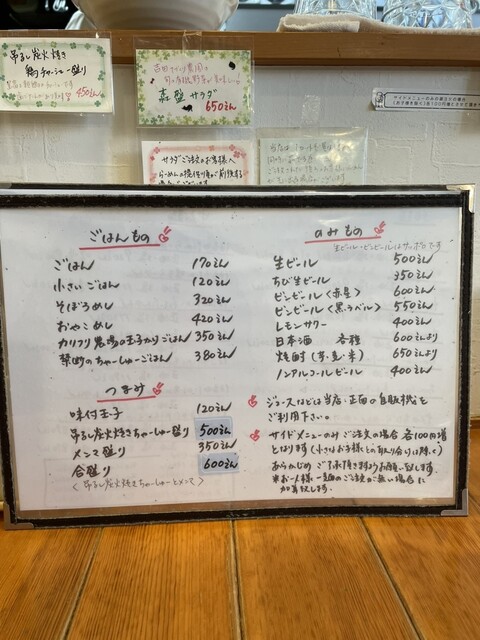 吊るし炭火焼き
鶏チャーシュー盛り
450えん
森盛サラダ
650えん
サラダご注文のお客様へ
ごはんもの
ごはん 170えん
小さいごはん 120えん
そぼろめし 320えん
おやこめし 420えん
カリフリ農場の玉子かけごはん 350えん
禁断のちゃーしゅーごはん 380えん
つまみ
味付玉子 120えん
吊るし炭火焼きちゃーしゅー盛り 500えん
メンマ盛り 350えん
合盛り 600えん
〈吊るし炭火焼きちゃーしゅーとメンマ〉
のみもの
生ビール・ビンビールはサッポロです
生ビール 500えん
ちび生ビール 350えん
ビンビール〈赤星〉 600えん
ビンビール〈黒ラベル〉 550えん
レモンサワー 400えん
日本酒 各種 600えんより
焼酎(芋・麦・米) 650えんより
ノンアルコールビール 400えん
ジュースなどは当店正面の自販機を
ご利用下さい。
サイドメニューのみご注文の場合各100円増
となります(小さなお子様との取り分けは除く)
あらかじめご了承頂きますようお願い致します。
※お一人様一麺のご注文がない場合に
加算致します。